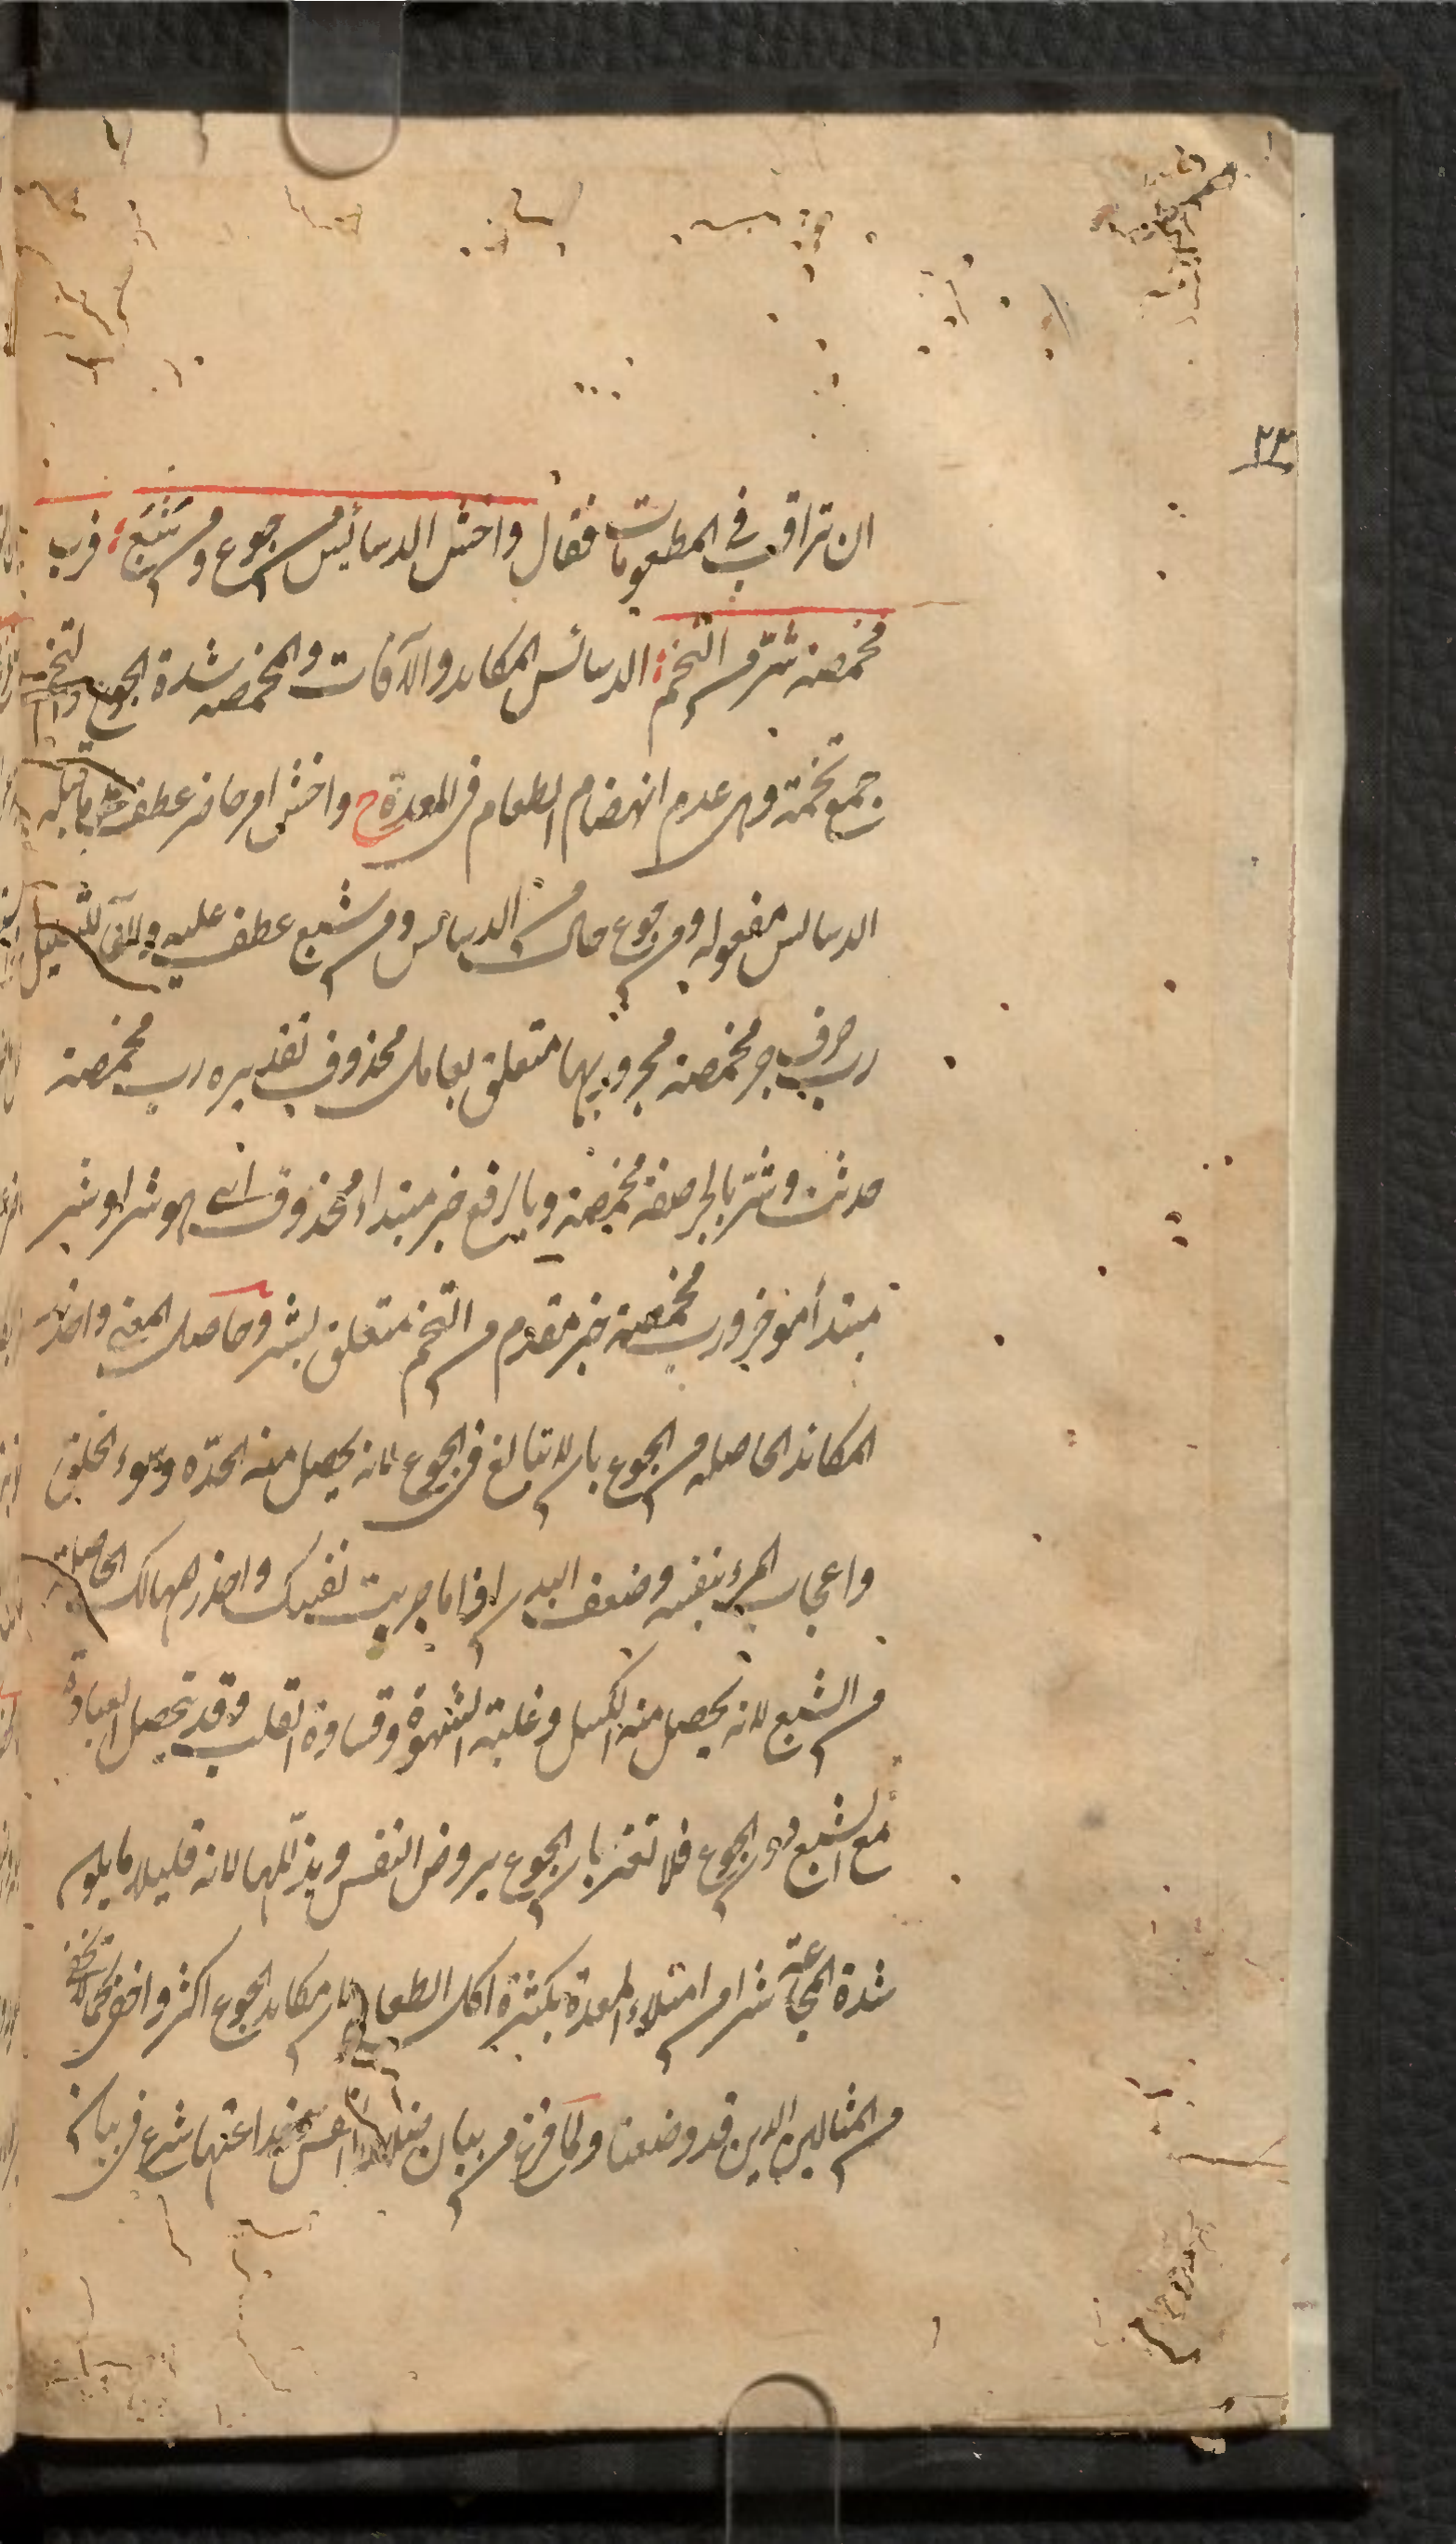 ٢٣
ان تراقب فى المطعومات فقال واخش الدسائس من جوع ومن شبع؛ فرب
مخمصة شر من التخم؛ الدسائس المكايد والآفات والمخمصة شدة الجوع والتخم
جمع تخمة وهى عدم انهضام الطعام فى المعدة ح واخش امر حاضر عطف على ما قبله
الدسائس مفعوله ومن جوع حال من الدسائس ومن شبع عطف عليه والفا للتعليل
رب حرف جر مخمصة مجرور بها متعلق بعامل محذوف تقديره رب مخمصة
حدثت وشر بالجر صفة مخمصة وبالرفع خبر مبتداء محذوف اى هو شر او شر
مبتدأ مؤخر ورب مخمصة خبر مقدم من التخم متعلق بشر وحاصل المعنى واحذر
المكائد الحاصله من الجوع بان لا تبالغ فى الجوع لانه يحصل منه الحدّه وسوء الخلق
واعجاب المرء بنفسه وضعف البدن اذا ما جربت نفسك واحذر مهالك الحاصلة
من الشبع لانه يحصل منه الكسل وغلبة الشهوة وقساوة القلب وقد تحصل العبادة
مع الشبع دون الجوع فلا تغتر بان الجوع يروض النفس ويذللها لانه قليلا ما يكون
شدة المجاعة شرا من امتلاء المعدة بكثرة اكل الطعام لان مكايد الجوع اكثر واخفى كما لا يخفى
من المثالين الذين قد وضعنا ولما فرغ من بيان النفس مخداعتها شرع فى بيان